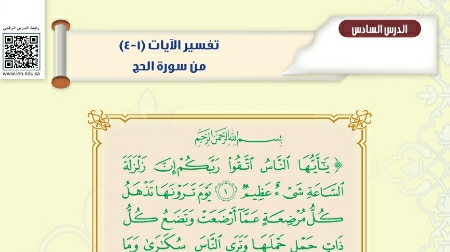 الدرس السادس
رابط الدرس الرقمي
www.ien.edu.sa
تفسير الآيات (١-٤)
من سورة الحج
بِسْمِ اللَّهِ الرَّحْمَنِ الرَّحِيمِ
﴿ يَٰٓأَيُّهَا ٱلنَّاسُ ٱتَّقُوا۟ رَبَّكُمْ إِنَّ زَلْزَلَةَ
ٱلسَّاعَةِ شَىْءٌ عَظِيمٌ ١ يَوْمَ تَرَوْنَهَا تَذْهَلُ
كُلُّ مُرْضِعَةٍ عَمَّآ أَرْضَعَتْ وَتَضَعُ كُلُّ
ذَاتِ حَمْلٍ حَمْلَهَا وَتَرَى ٱلنَّاسَ سُكَٰرَىٰ وَمَا